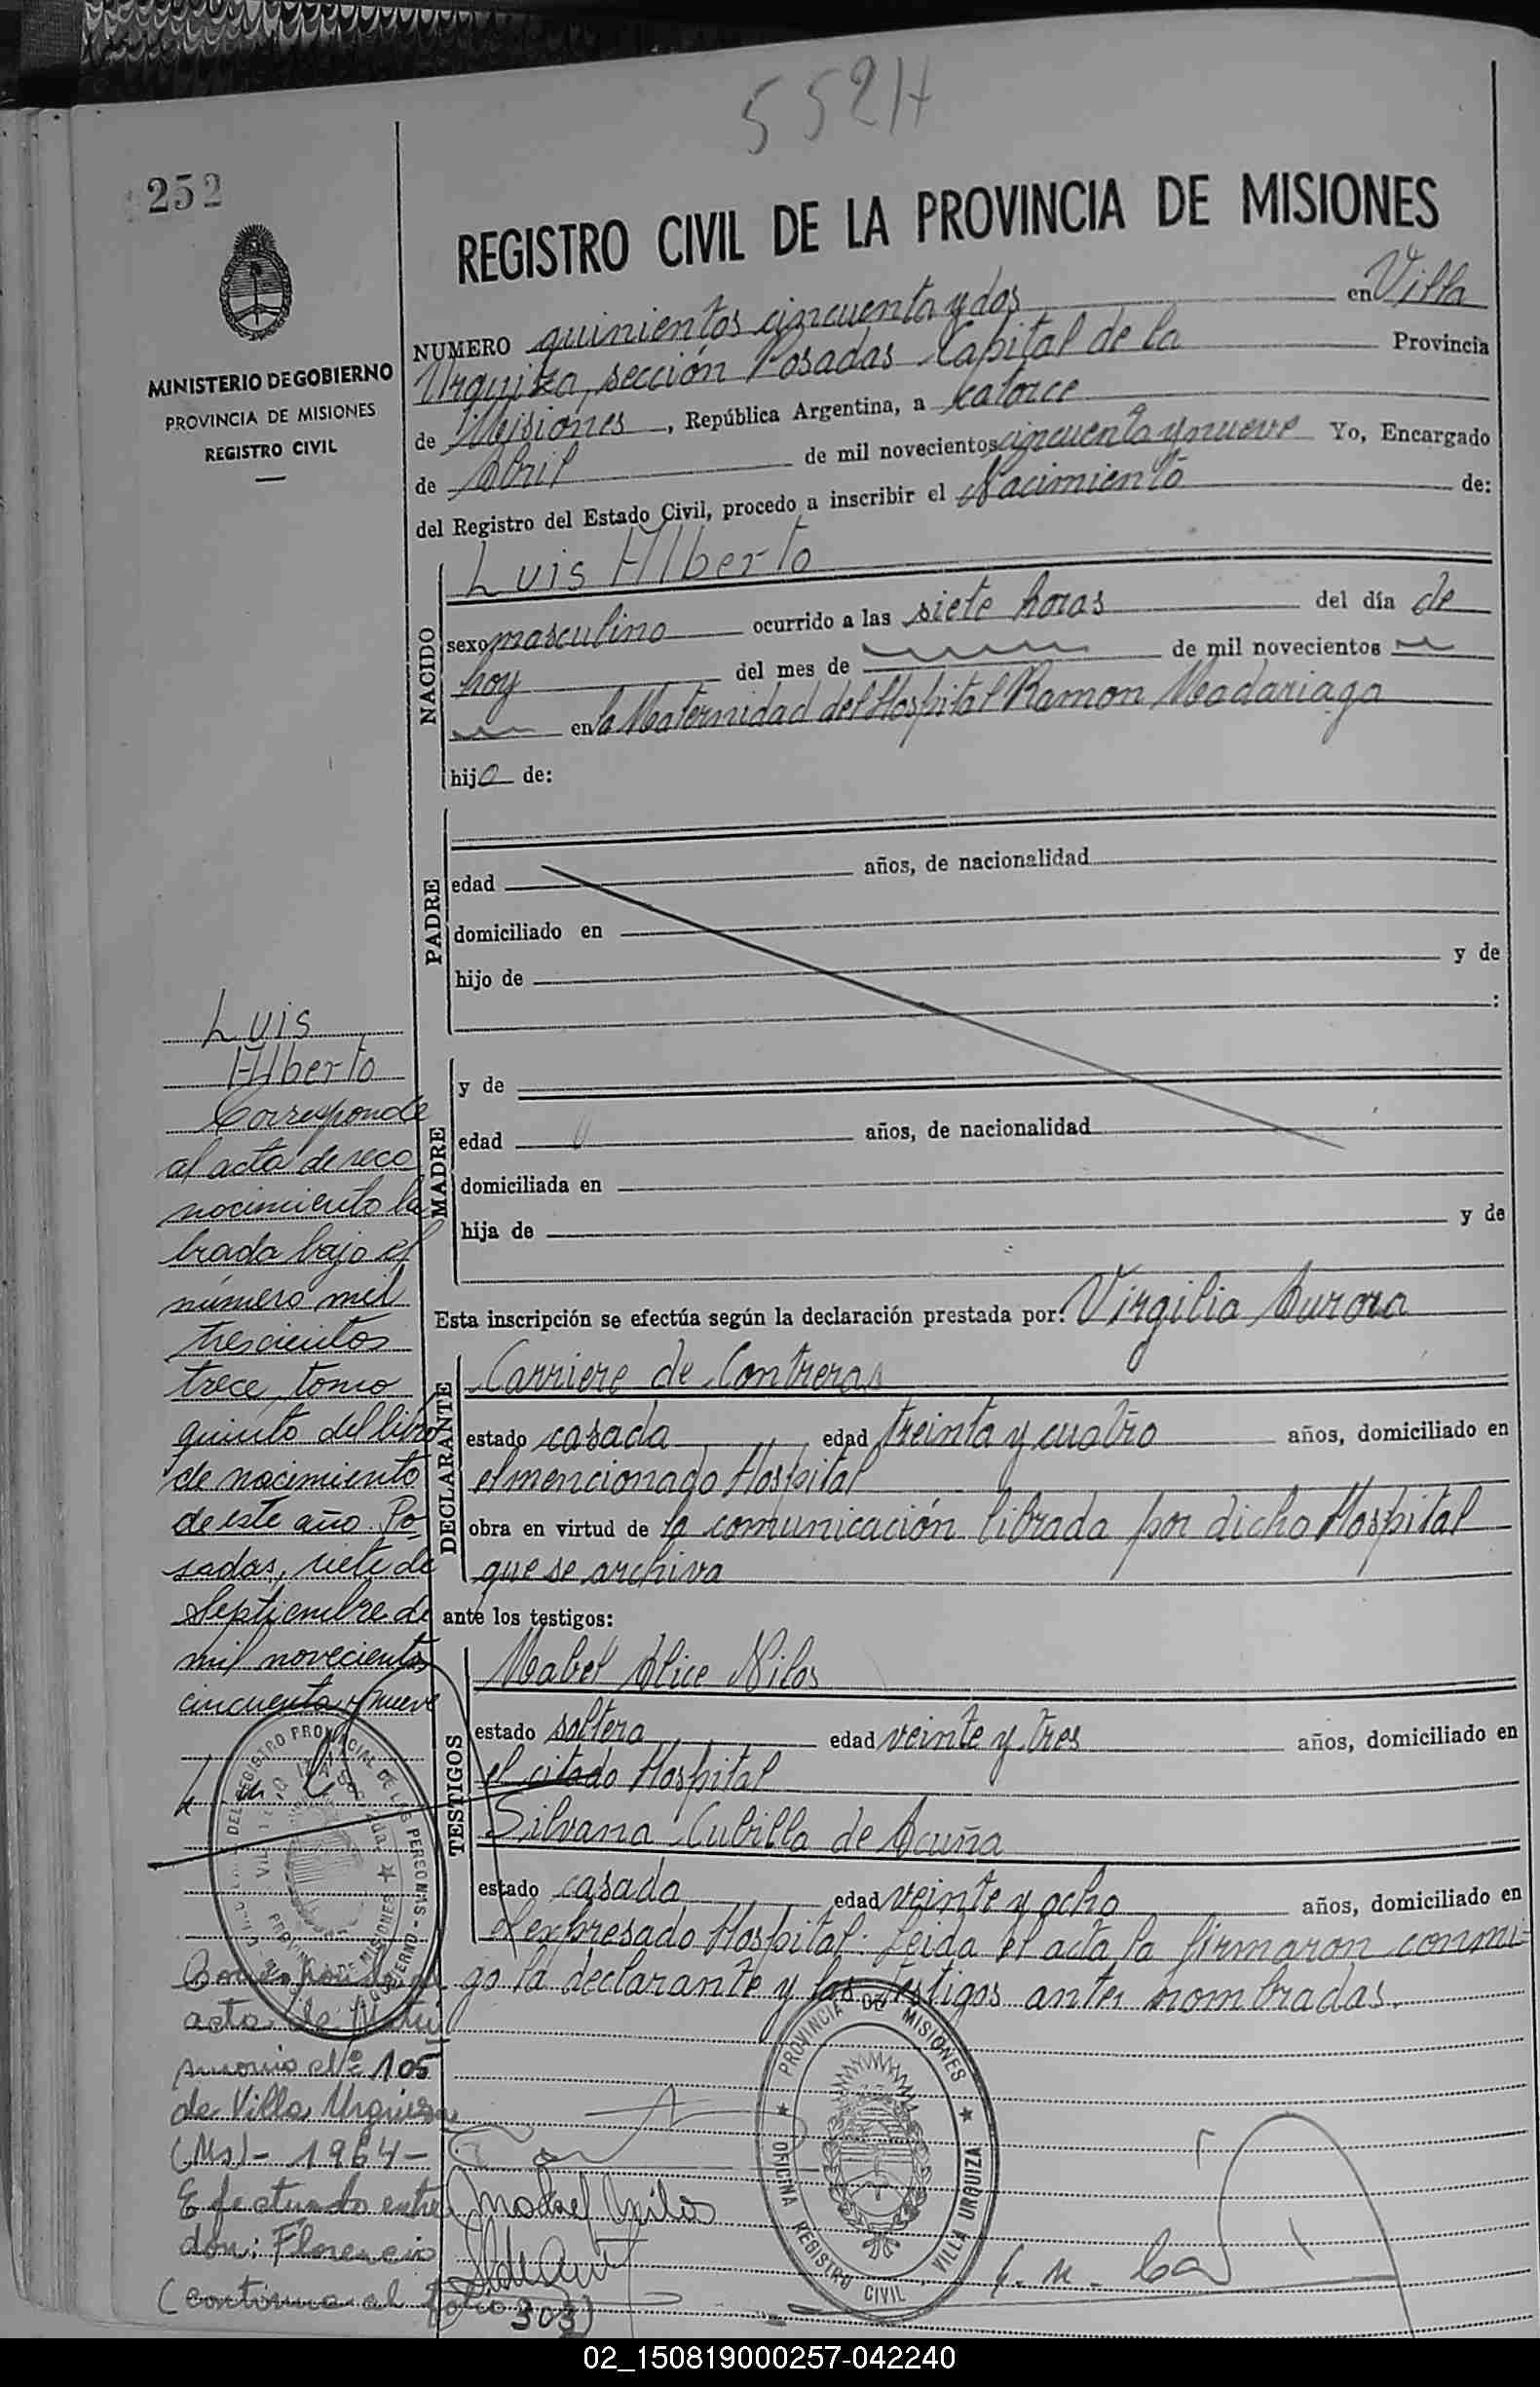 552 H
252
REGISTRO CIVIL DE LA PROVINCIA DE MISIONES
MINISTERIO DE GOBIERNO
PROVINCIA DE MISIONES
REGISTRO CIVIL
NUMERO quinientos cincuenta y dos en Villa
Urquiza, sección Posadas Capital de la Provincia
de Misiones, República Argentina, a catorce
de Abril de mil novecientos cincuenta y nueve Yo, Encargado
del Registro del Estado Civil, procedo a inscribir el Nacimiento de:
NACIDO
Luis Alberto
sexo masculino ocurrido a las siete horas del día de
hoy del mes de de mil novecientos
en la Maternidad del Hospital Ramon Madariaga
hijo de:
PADRE
edad años, de nacionalidad
domiciliado en
hijo de y de
:
MADRE
y de
edad años, de nacionalidad
domiciliada en
hija de y de
Esta inscripción se efectúa según la declaración prestada por: Virgilia Aurora
DECLARANTE
Carriere de Contreras
estado casada edad treinta y cuatro años, domiciliado en
el mencionado Hospital
obra en virtud de la comunicación librada por dicho Hospital
que se archiva
ante los testigos:
TESTIGOS
Mabel Alice Nilos
estado soltera edad veinte y tres años, domiciliado en
el citado Hospital
Silvana Cubilla de Acuña
estado casada edad veinte y ocho años, domiciliado en
el expresado Hospital. Leida el acta la firmaron conmi-
go la declarante y las testigos antes nombradas.
Luis
Alberto
Corresponde
al acta de reco
nocimiento la
brada bajo el
número mil
trescientos
trece, tomo
quinto del libro
de nacimiento
de este año. Po
sadas, siete de
Septiembre de
mil novecientos
cincuenta y nueve
Corresponde al
acta de Matri
monio Nº 105
de Villa Urquiza
(Ms) - 1964 -
Efectuado entre
don: Florencio
(continua al folio 303)
PROVINCIA DE MISIONES
OFICINA REGISTRO CIVIL - VILLA URQUIZA
02_150819000257-042240